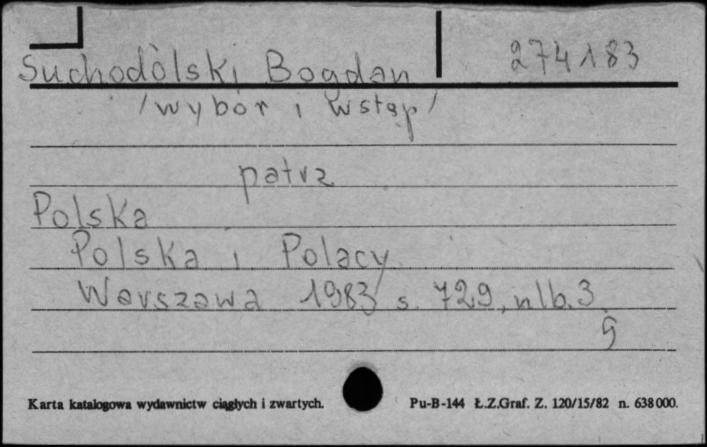 Suchodolski Bogdan 274183
/wybór i wstęp/
patrz
Polska
Polska i Polacy
Warszawa 1983 s. 729, nlb. 3
Karta katalogowa wydawnictw ciągłych i zwartych. Pu-B-144 Ł.Z.Graf. Z. 120/15/82 n. 638000.